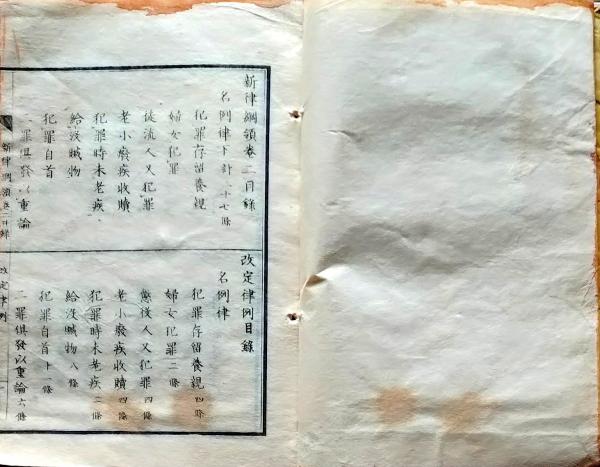 新律綱領卷二目錄
名例律下計二十七條
犯罪存留養親
婦女犯罪
徒流人又犯罪
老小癈疾收贖
犯罪時未老疾
給沒贓物
犯罪自首
二罪俱發以重論
改定律例目錄
名例律
犯罪存留養親四條
婦女犯罪二條
懲役人又犯罪四條
老小癈疾收贖四條
犯罪時未老疾二條
給沒贓物八條
犯罪自首十一條
二罪俱發以重論六條
新律綱領卷二目錄
改定律例